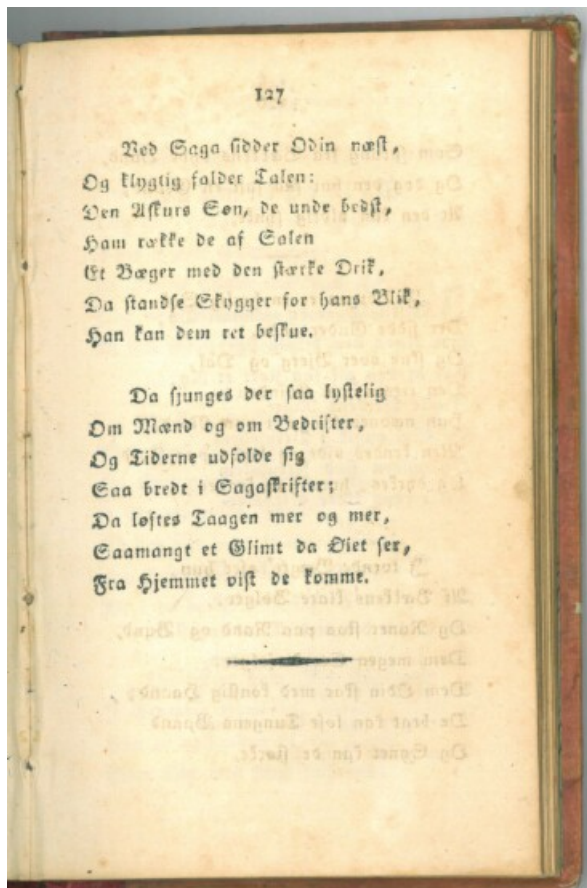 127
Ved Saga sidder Odin næst,
Og klygtig falder Talen:
Den Askurs Søn, de unde bedst,
Ham række de af Salen
Et Bæger med den stærke Drik,
Da standse Skygger for hans Blik,
Han kan dem ret beskue.
Da sjunges der saa lystelig
Om Mænd og om Bedrifter,
Og Tiderne udfolde sig
Saa bredt i Sagaskrifter;
Da løftes Taagen mer og mer,
Saamangt et Glimt da Øiet ser,
Fra Hjemmet vist de komme.